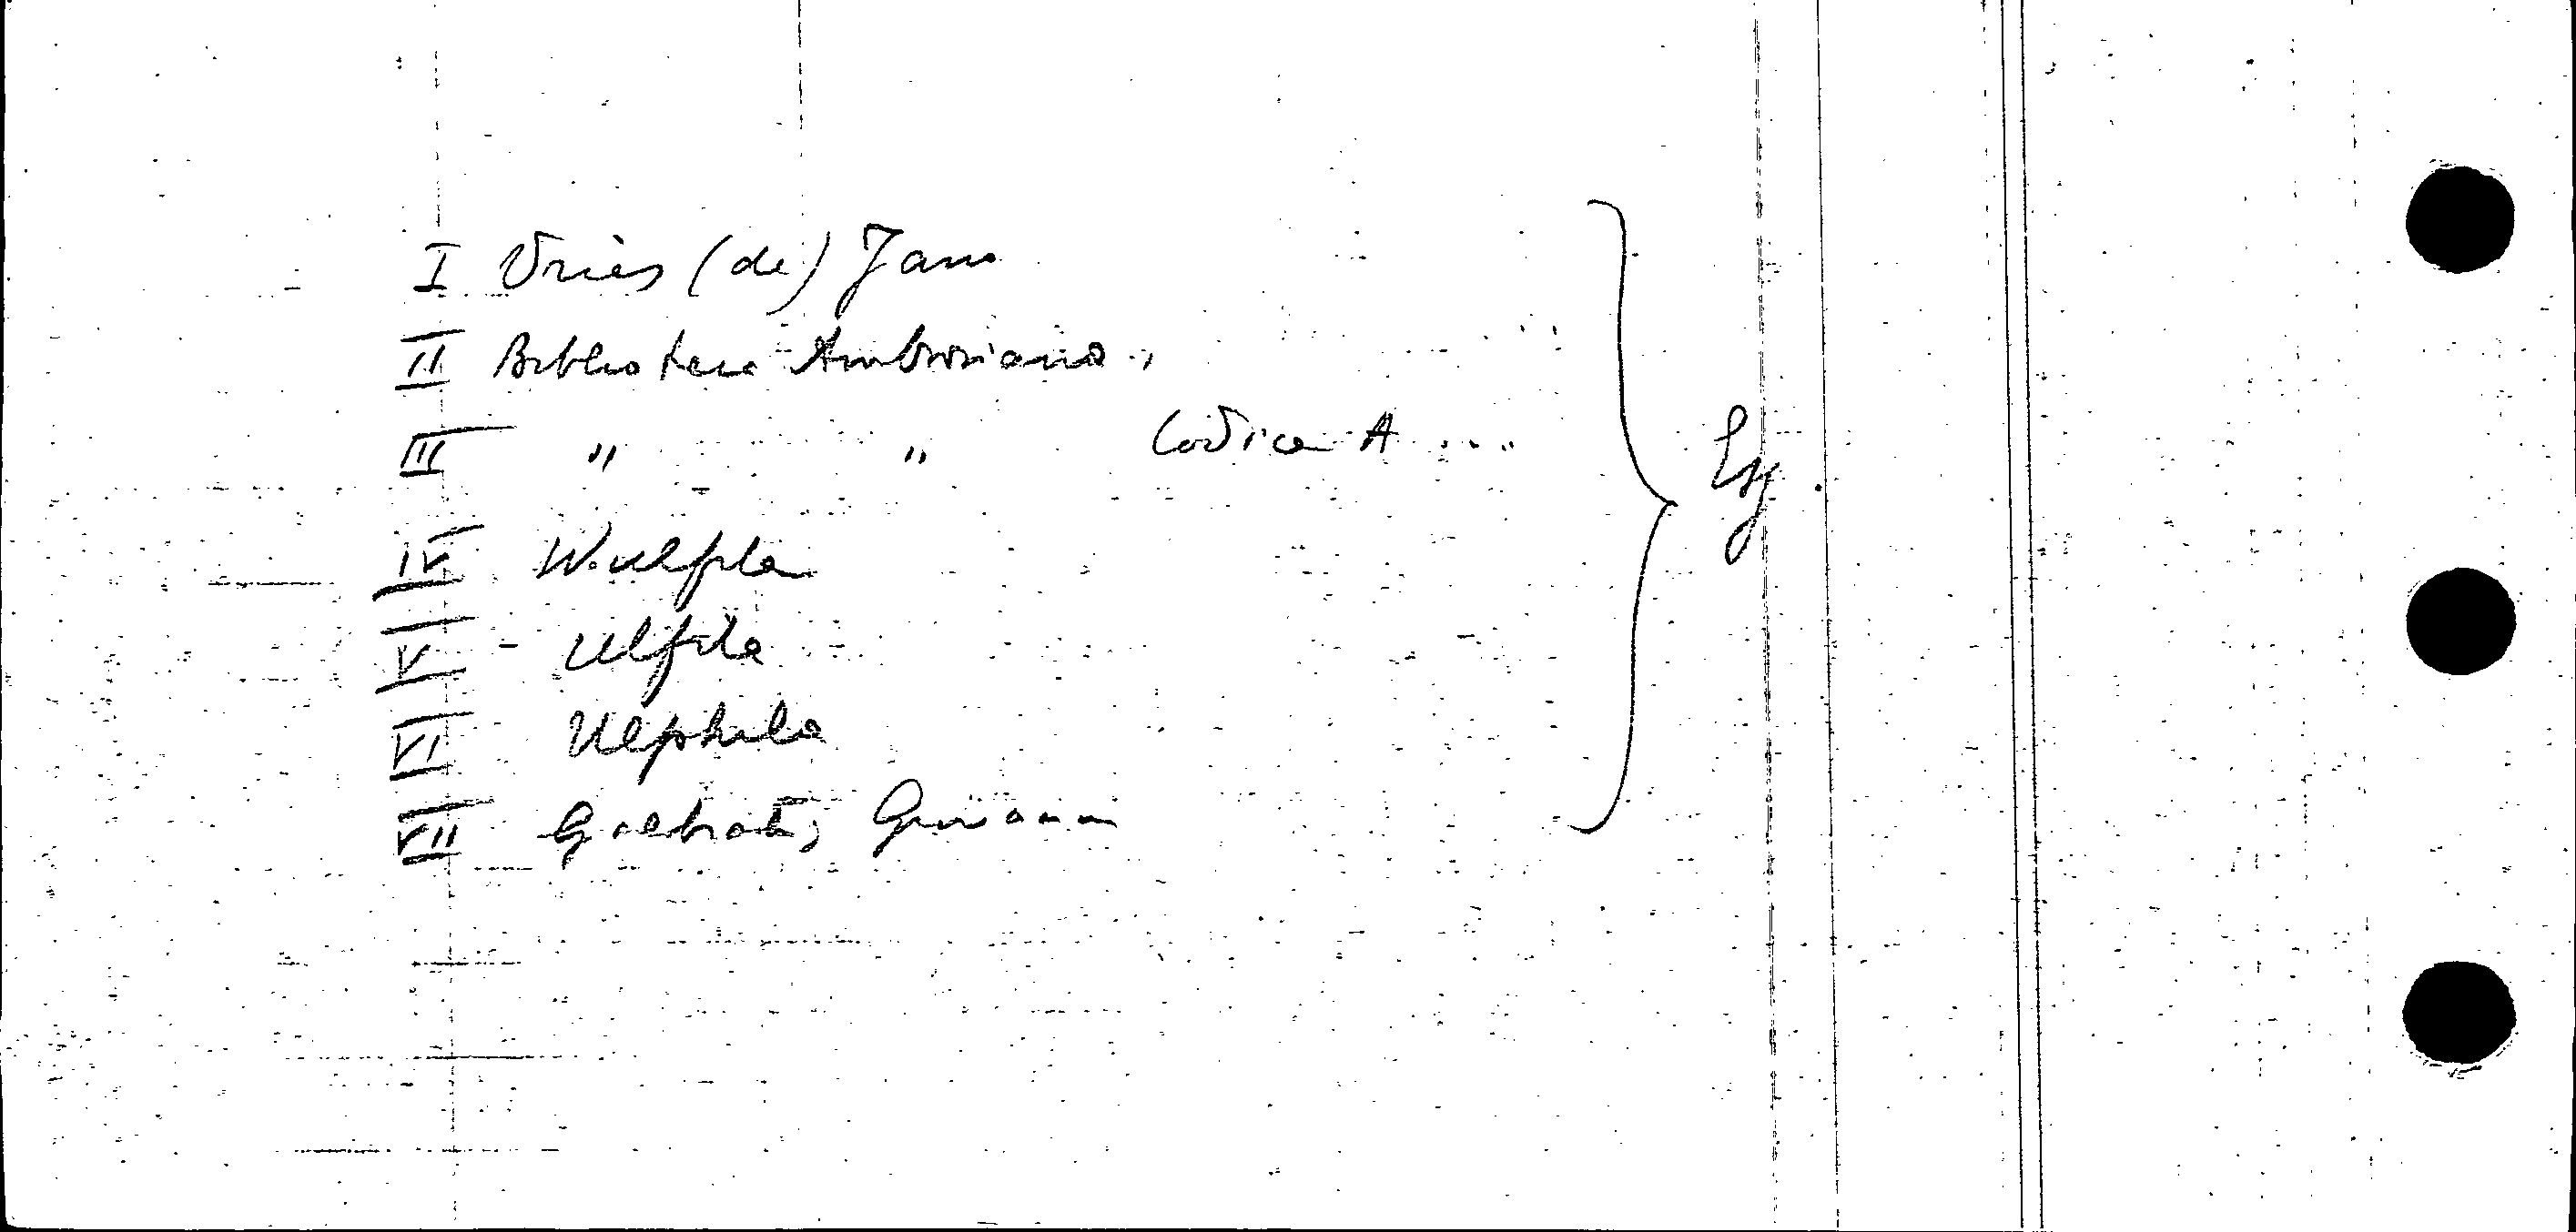 I Vries (de) Jan
II Biblioteca Ambrosiana,
III " " Codice A ....
IV Wulfila
V - Ulfila
VI Ulphila
VII Galbiati, Giovanni